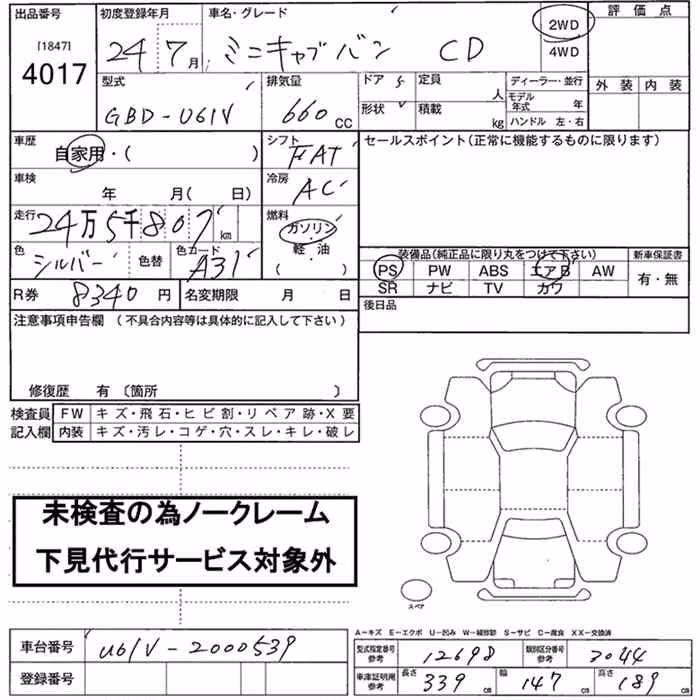 出品番号
[1847]
4017
初度登録年月
24 7 月
車名・グレード
ミニキャブバン CD
2WD
4WD
評価点
外装 内装
型式
GBD-U61V
排気量
660 cc
ドア 5
形状
定員 人
積載 kg
ディーラー・並行
モデル年式 年
ハンドル 左・右
車歴
自家用・( )
シフト
FAT
セールスポイント(正常に機能するものに限ります)
車検
年 月( 日)
冷房
AC
走行
24万5千807 km
燃料
ガソリン・軽・油
( )
色
シルバー
色替
色カード
A31
装備品(純正品に限り丸をつけて下さい)
PS PW ABS エアB AW
SR ナビ TV カワ
新車保証書
有・無
R券 8340 円
名変期限 月 日
後日品
注意事項申告欄 (不具合内容等は具体的に記入して下さい)
修復歴 有 〔箇所 〕
検査員記入欄
FW キズ・飛石・ヒビ割・リペア跡・X要
内装 キズ・汚レ・コゲ・穴・スレ・キレ・破レ
未検査の為ノークレーム
下見代行サービス対象外
スペア
A-キズ E-エクボ U-凹み W-補修跡 S-サビ C-腐食 XX-交換済
車台番号 U61V-2000539
登録番号
型式指定番号 参考 12698
類別区分番号 参考 3044
車庫証明用 参考
長さ 339 cm
幅 147 cm
高さ 189 cm